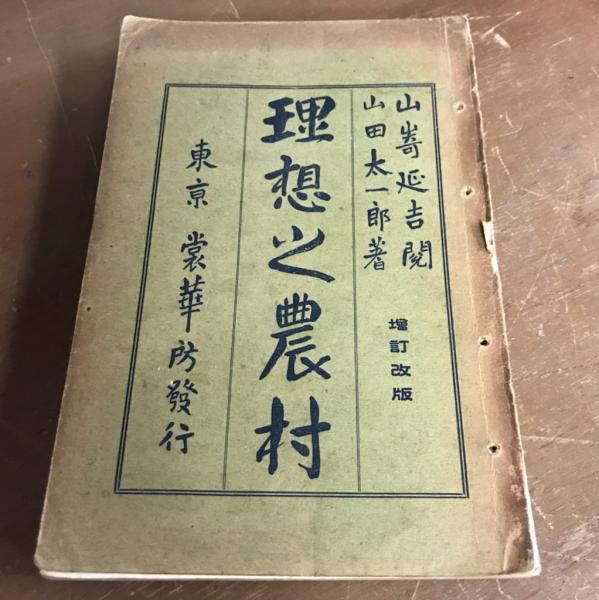 山嵜延吉閲
山田太一郎著
増訂改版
理想之農村
東京 裳華房發行